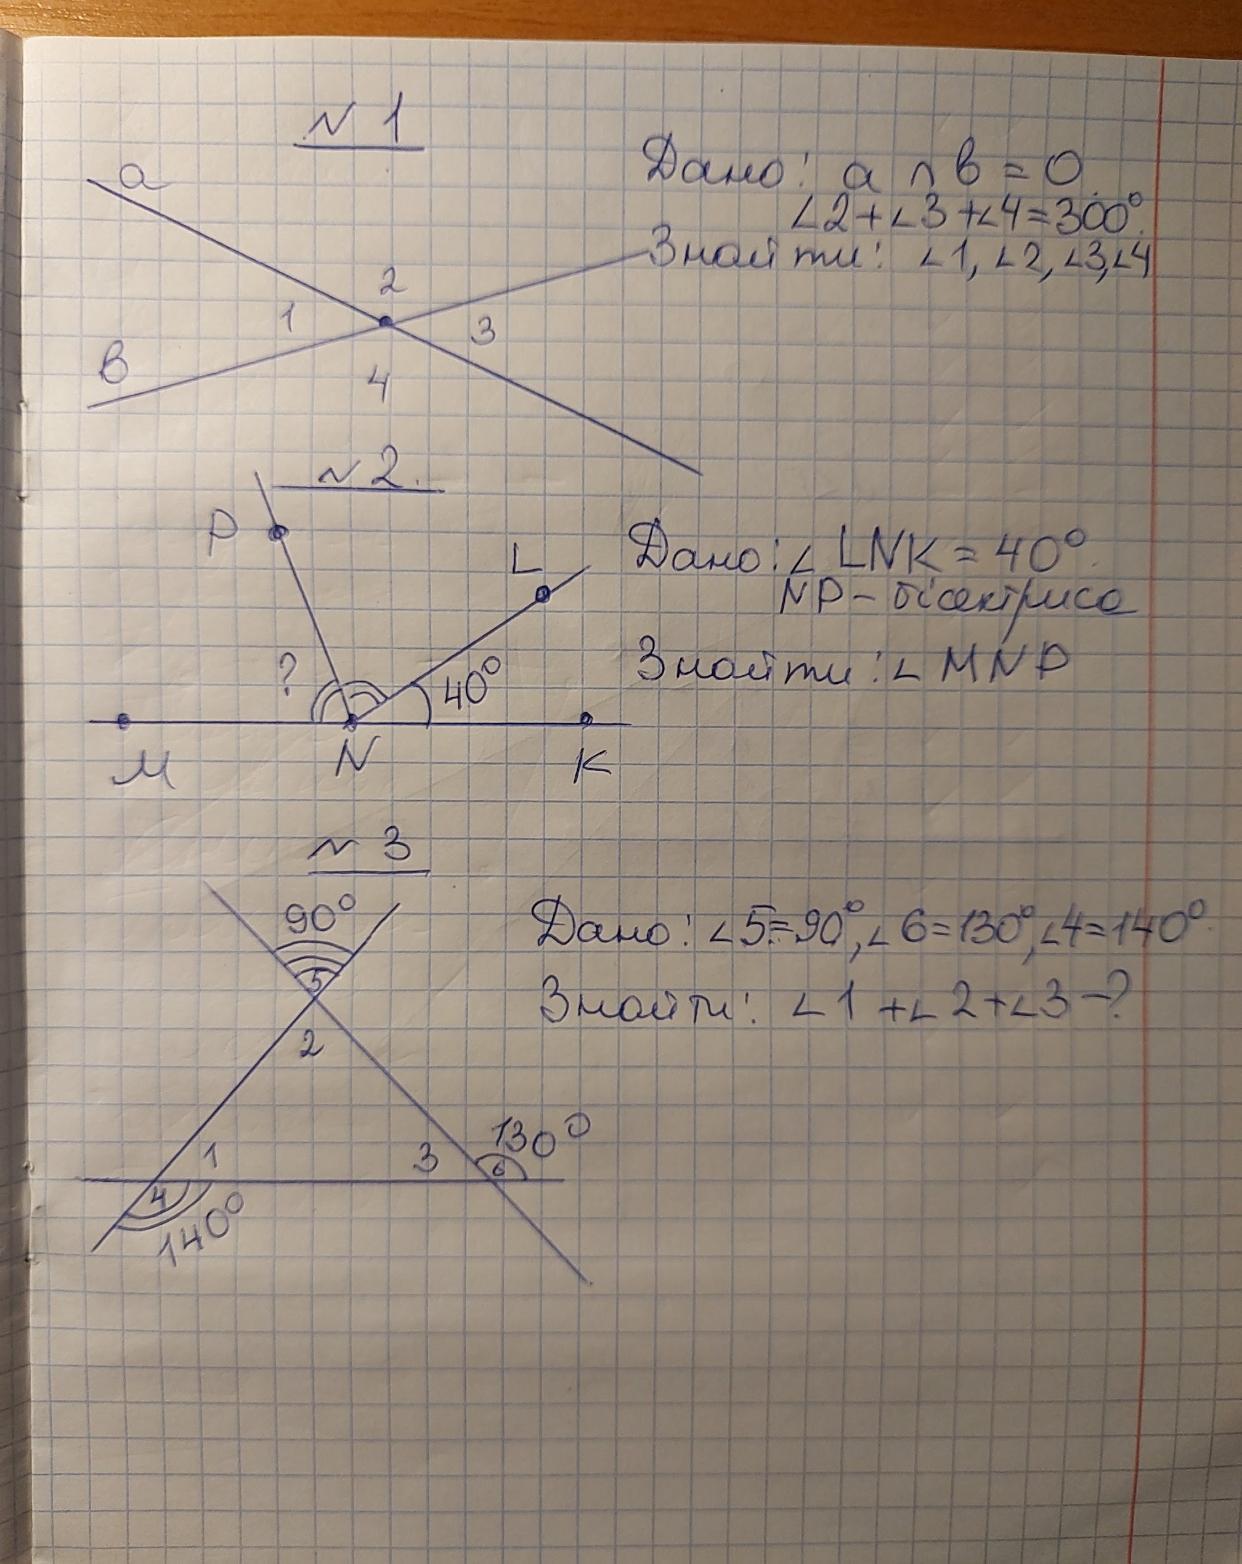 № 1
a
Дано: a ∩ b = O
∠2+∠3+∠4=300°.
Знайти: ∠1, ∠2, ∠3, ∠4
2
1
3
b
4
№ 2.
P
L
Дано: ∠LNK = 40°.
NP – бісектриса
Знайти: ∠MNP
?
40°
M
N
K
№ 3
90°
Дано: ∠5=90°, ∠6=130°, ∠4=140°.
5
Знайти: ∠1 +∠2+∠3 – ?
2
130°
1
3
6
4
140°